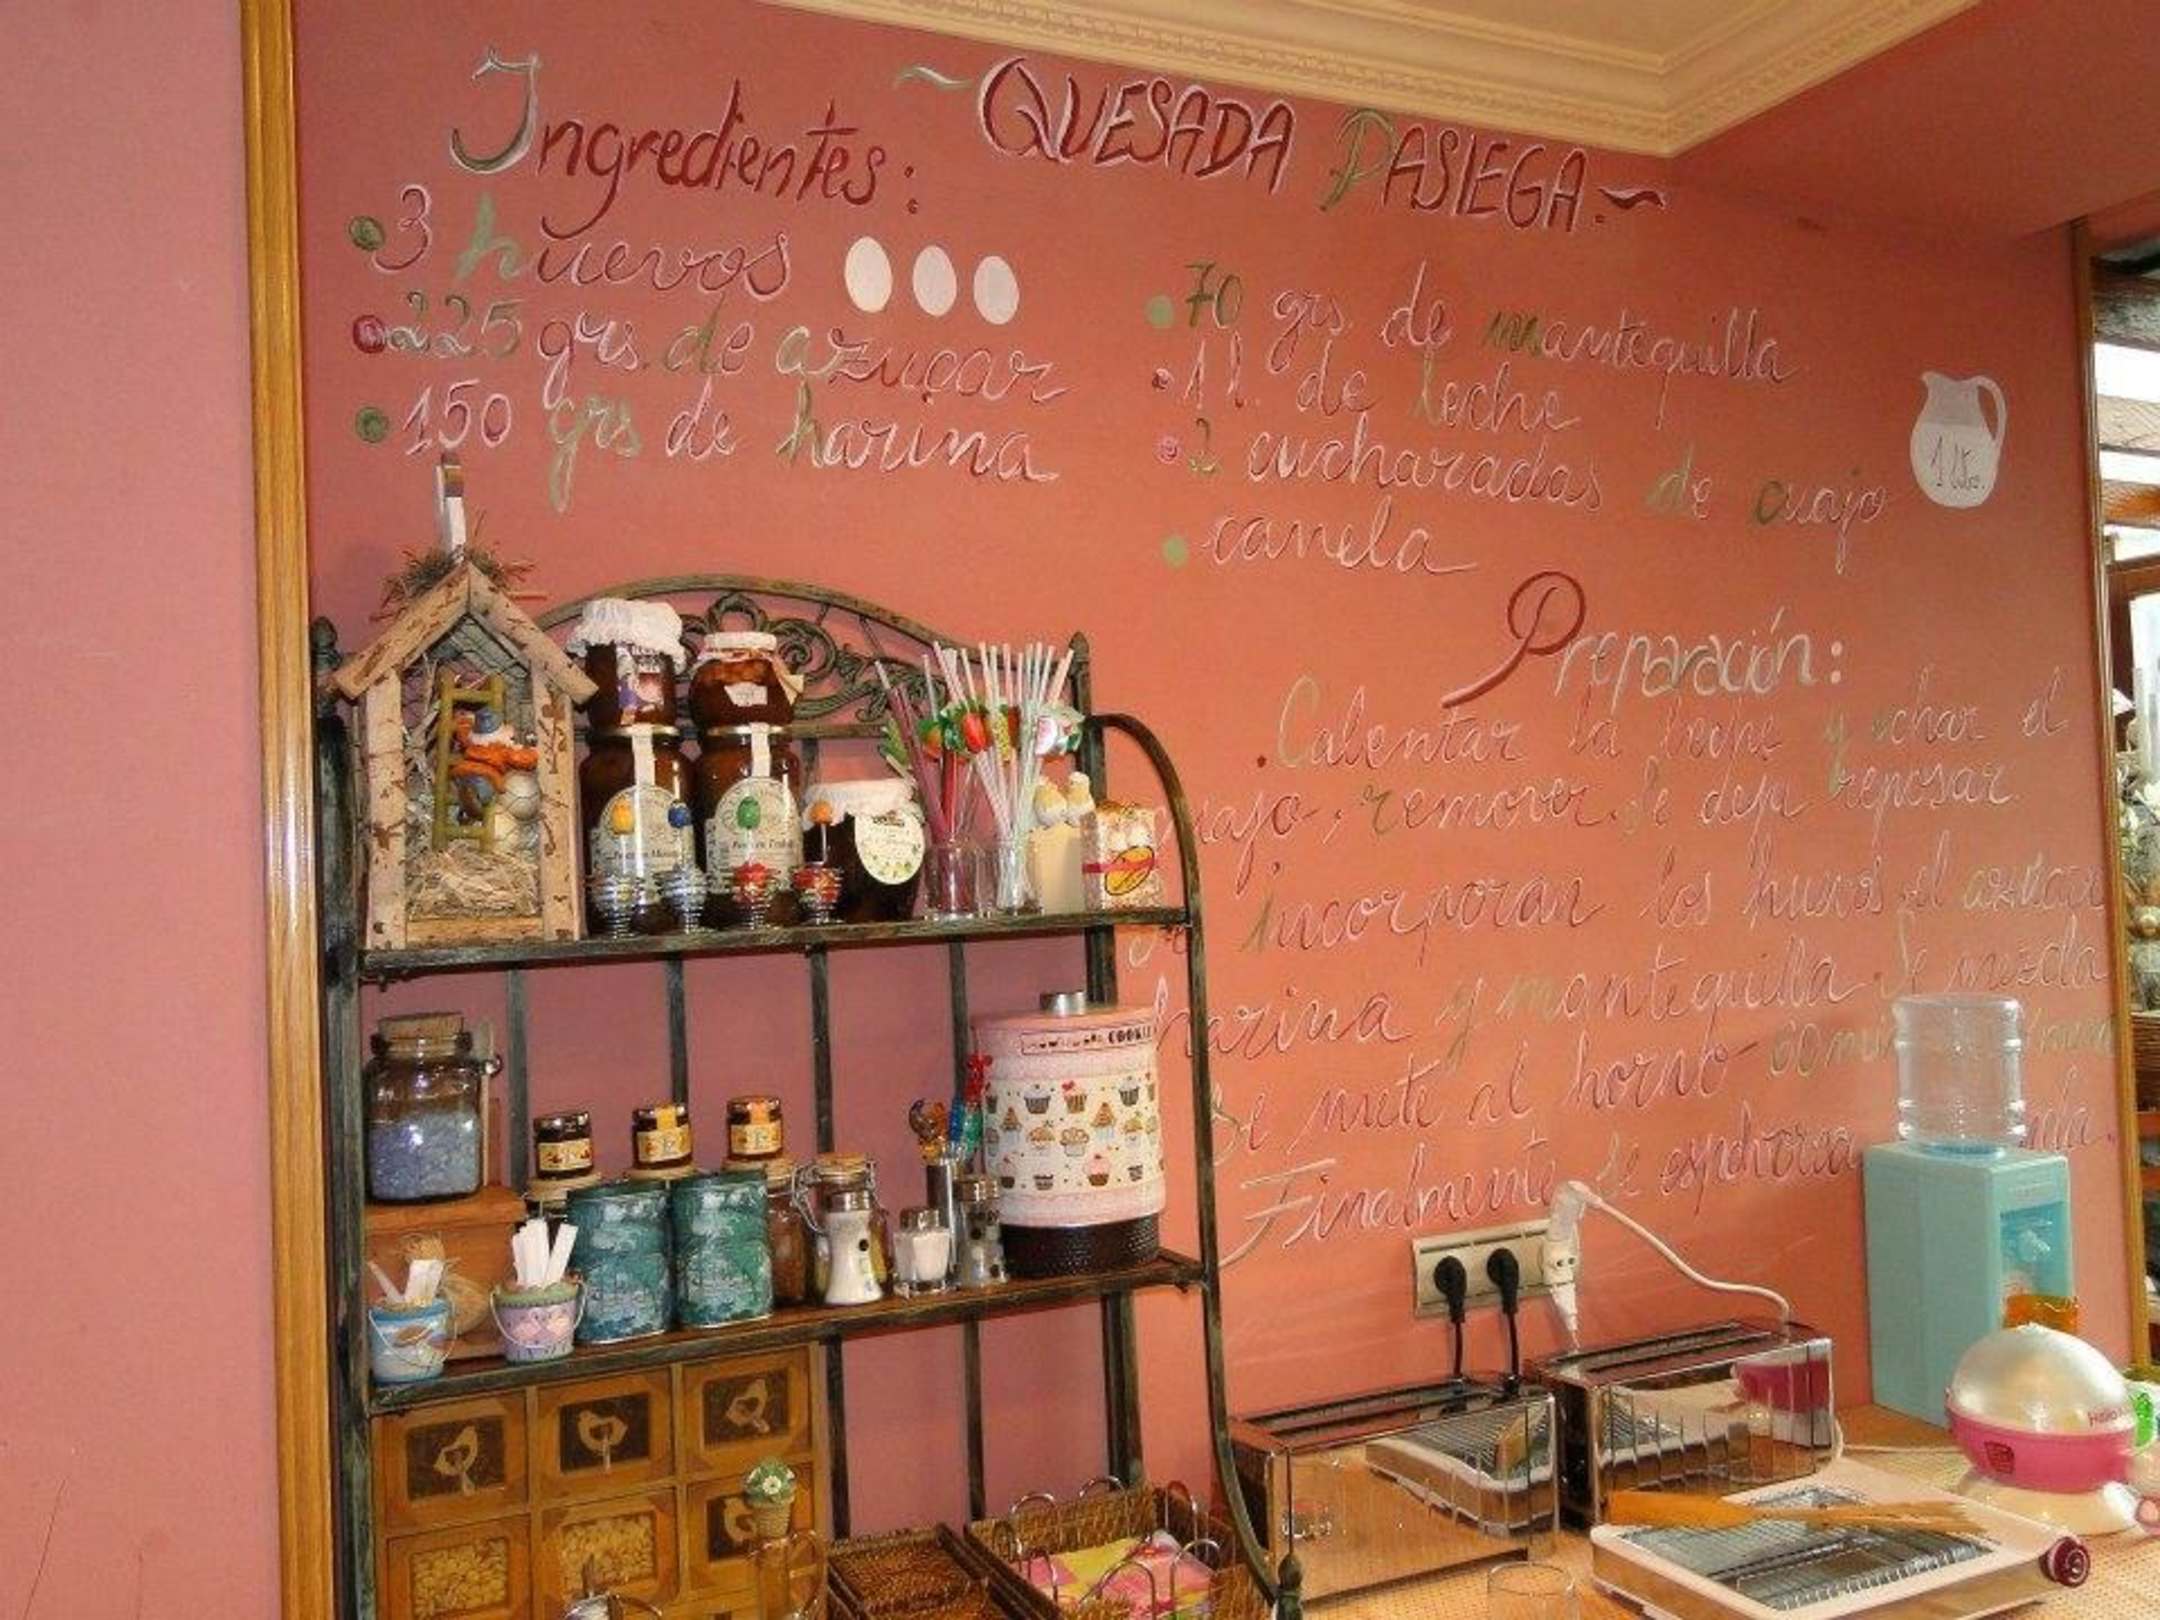 ~QUESADA PASIEGA.~
Ingredientes:
3 huevos
225 grs. de azucar
150 grs de harina
70 grs de mantequilla
1 l. de leche
2 cucharadas de cuajo
canela
1 Litro.
Preparación:
. Calentar la leche y echar el
cuajo, remover. Se deja reposar.
Se incorporan los huevos el azúcar
harina y mantequilla. Se mezcla
Se mete al horno
Finalmente se espolvorea
COOKIE